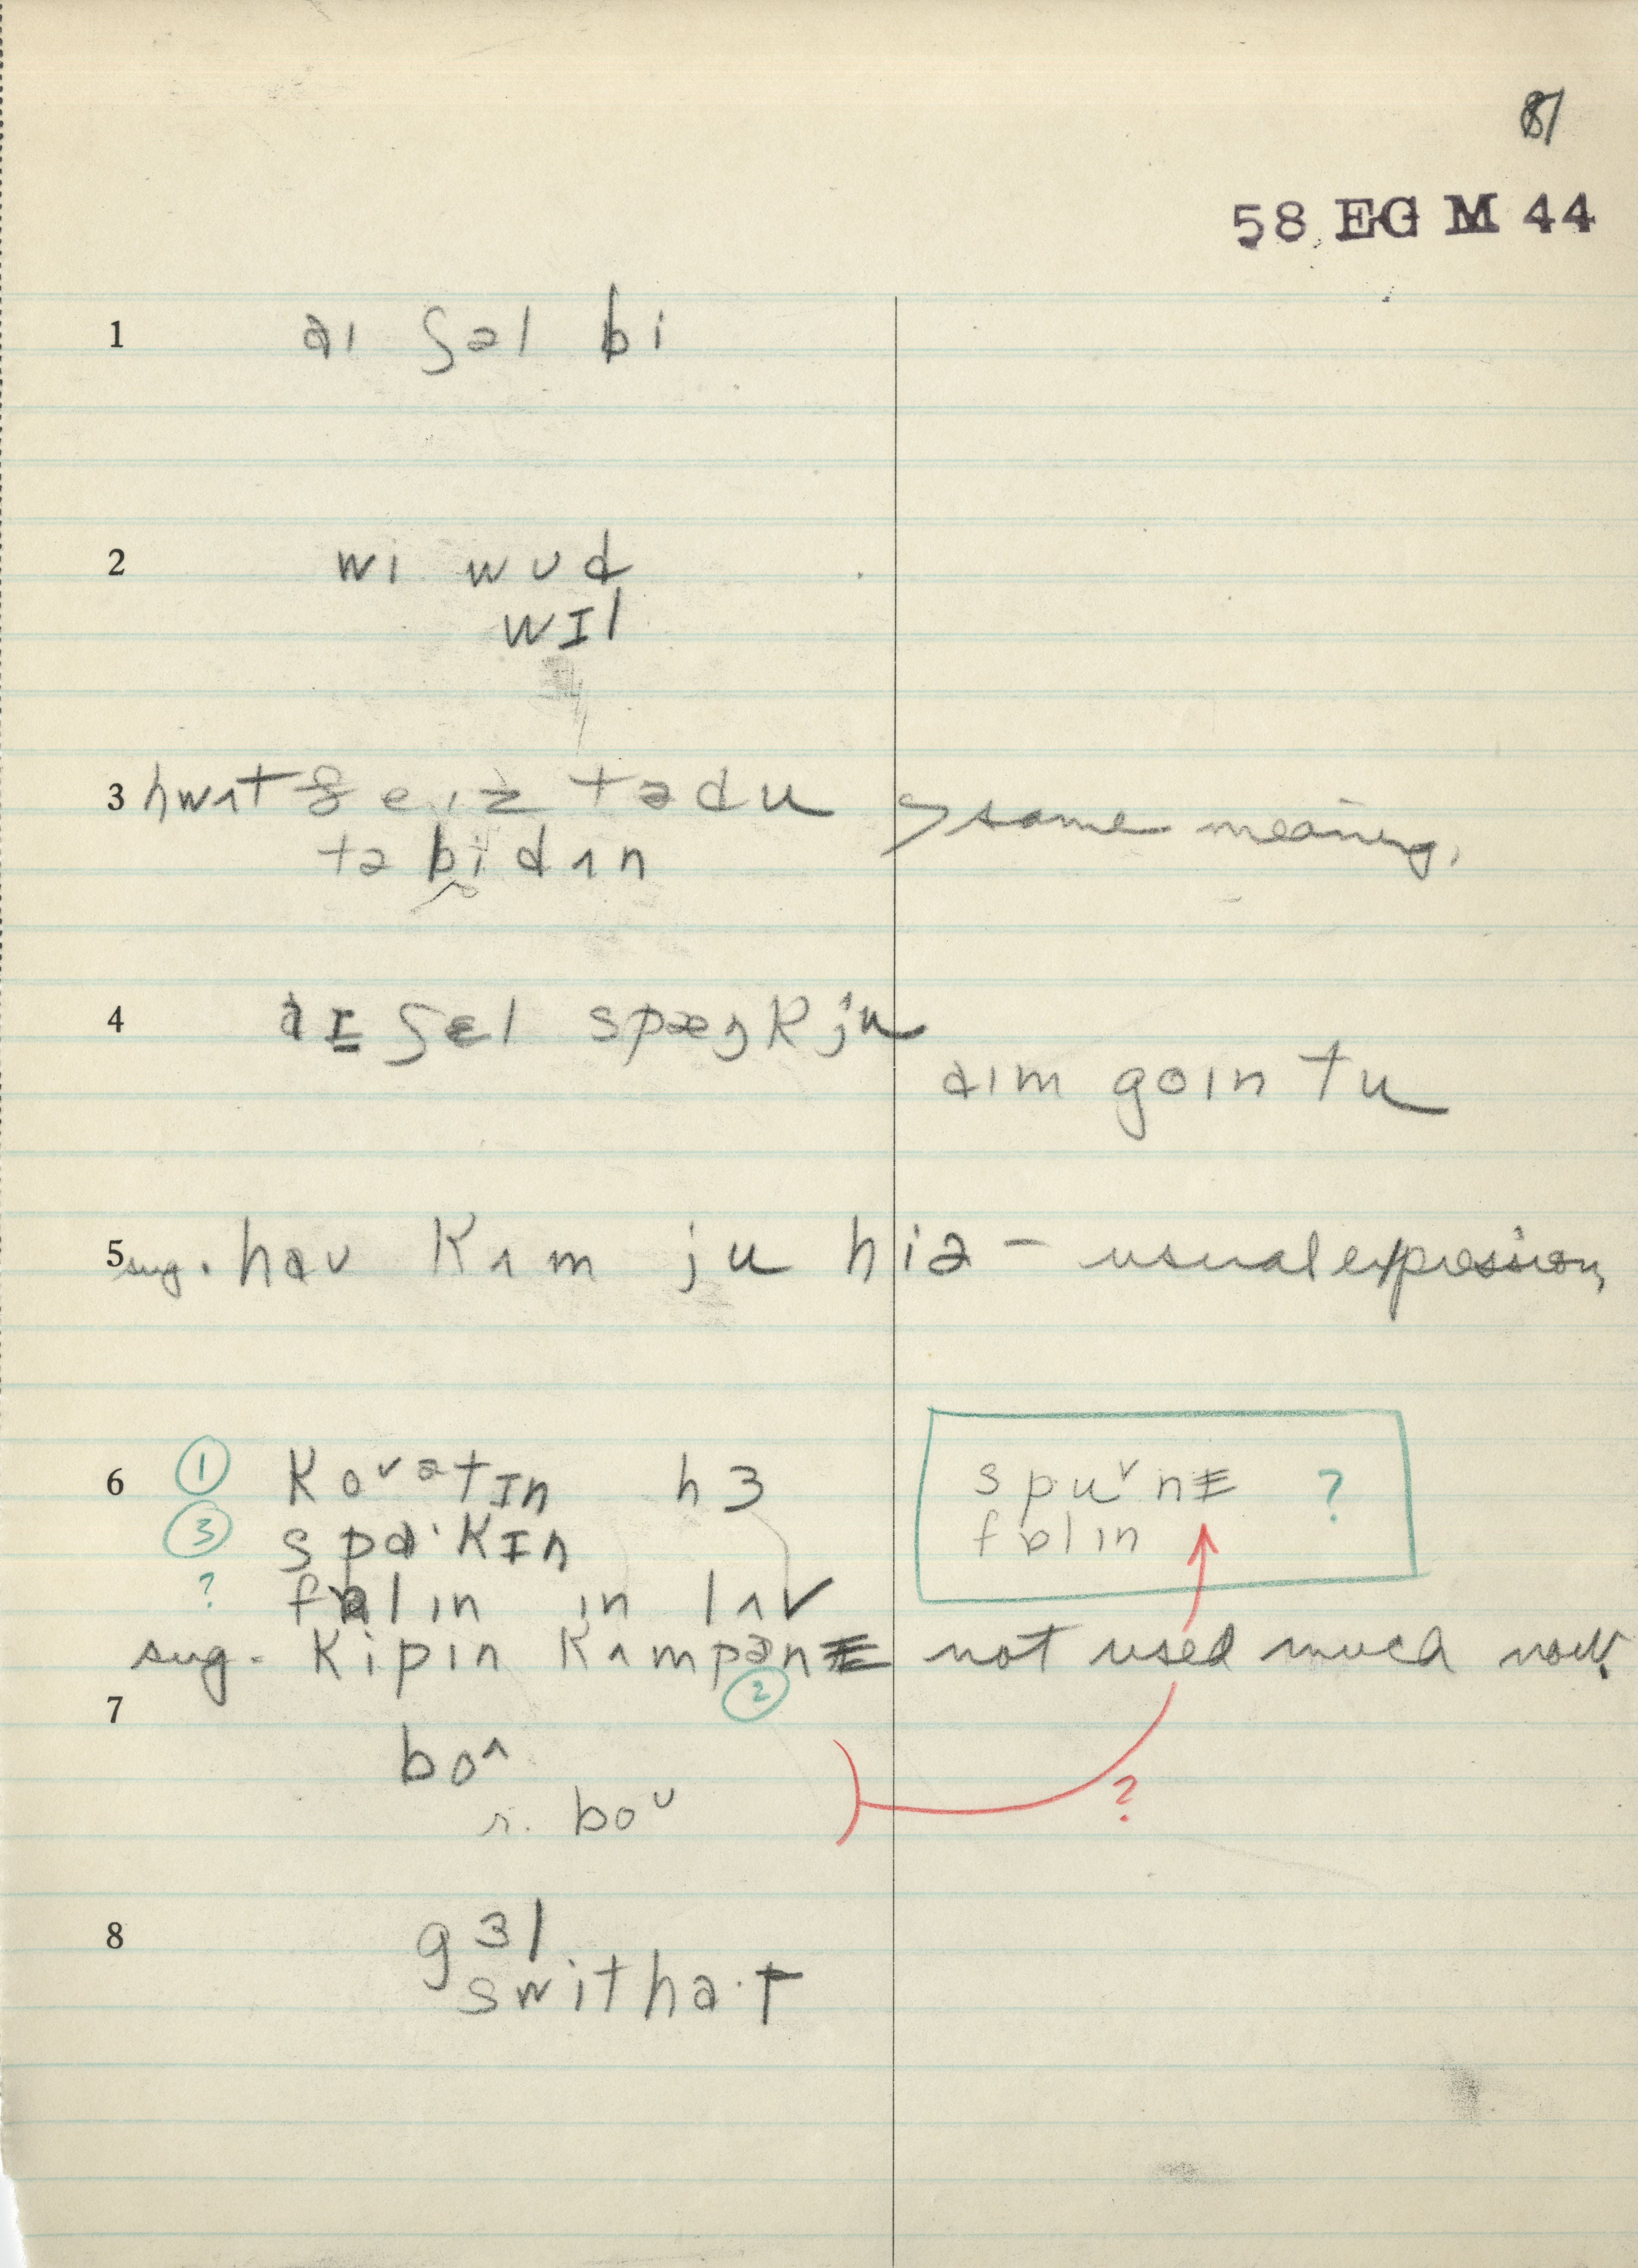 81
58 EG M 44
1 aɪ ʃəl bi
2 wi wʊd
wɪl
3 hwʌt ðeɪz tədu > same meaning.
tə bi dʌn
4 aɪ ʃɛl spæŋk ju
aɪm goɪn tu
5 sug. haʊ kʌm ju hiə – usual expression,
6 ① koᵛətɪn hɜ
③ spɑ·kɪn
? fɒlɪn ɪn lʌv
sug. kipɪn kʌmpənɪ not used much now.
②
spuᵛnɪ ?
fɒlɪn
7 bo^
r. boᵁ
?
8 gɜl
swithɑ·t